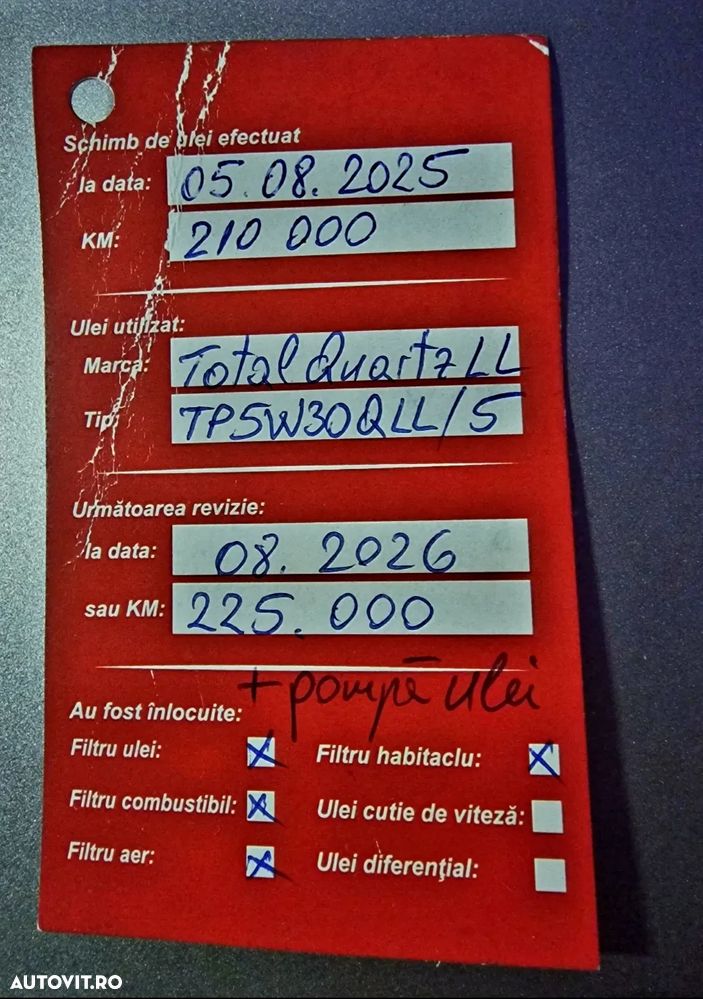 Schimb de ulei efectuat
la data: 05.08.2025
KM: 210 000
Ulei utilizat:
Marca: Total Quartz LL
Tip: TP5W30QLL/5
Următoarea revizie:
la data: 08. 2026
sau KM: 225. 000
+ pompă ulei
Au fost înlocuite:
Filtru ulei: X Filtru habitaclu: X
Filtru combustibil: X Ulei cutie de viteză:
Filtru aer: X Ulei diferenţial:
AUTOVIT.RO